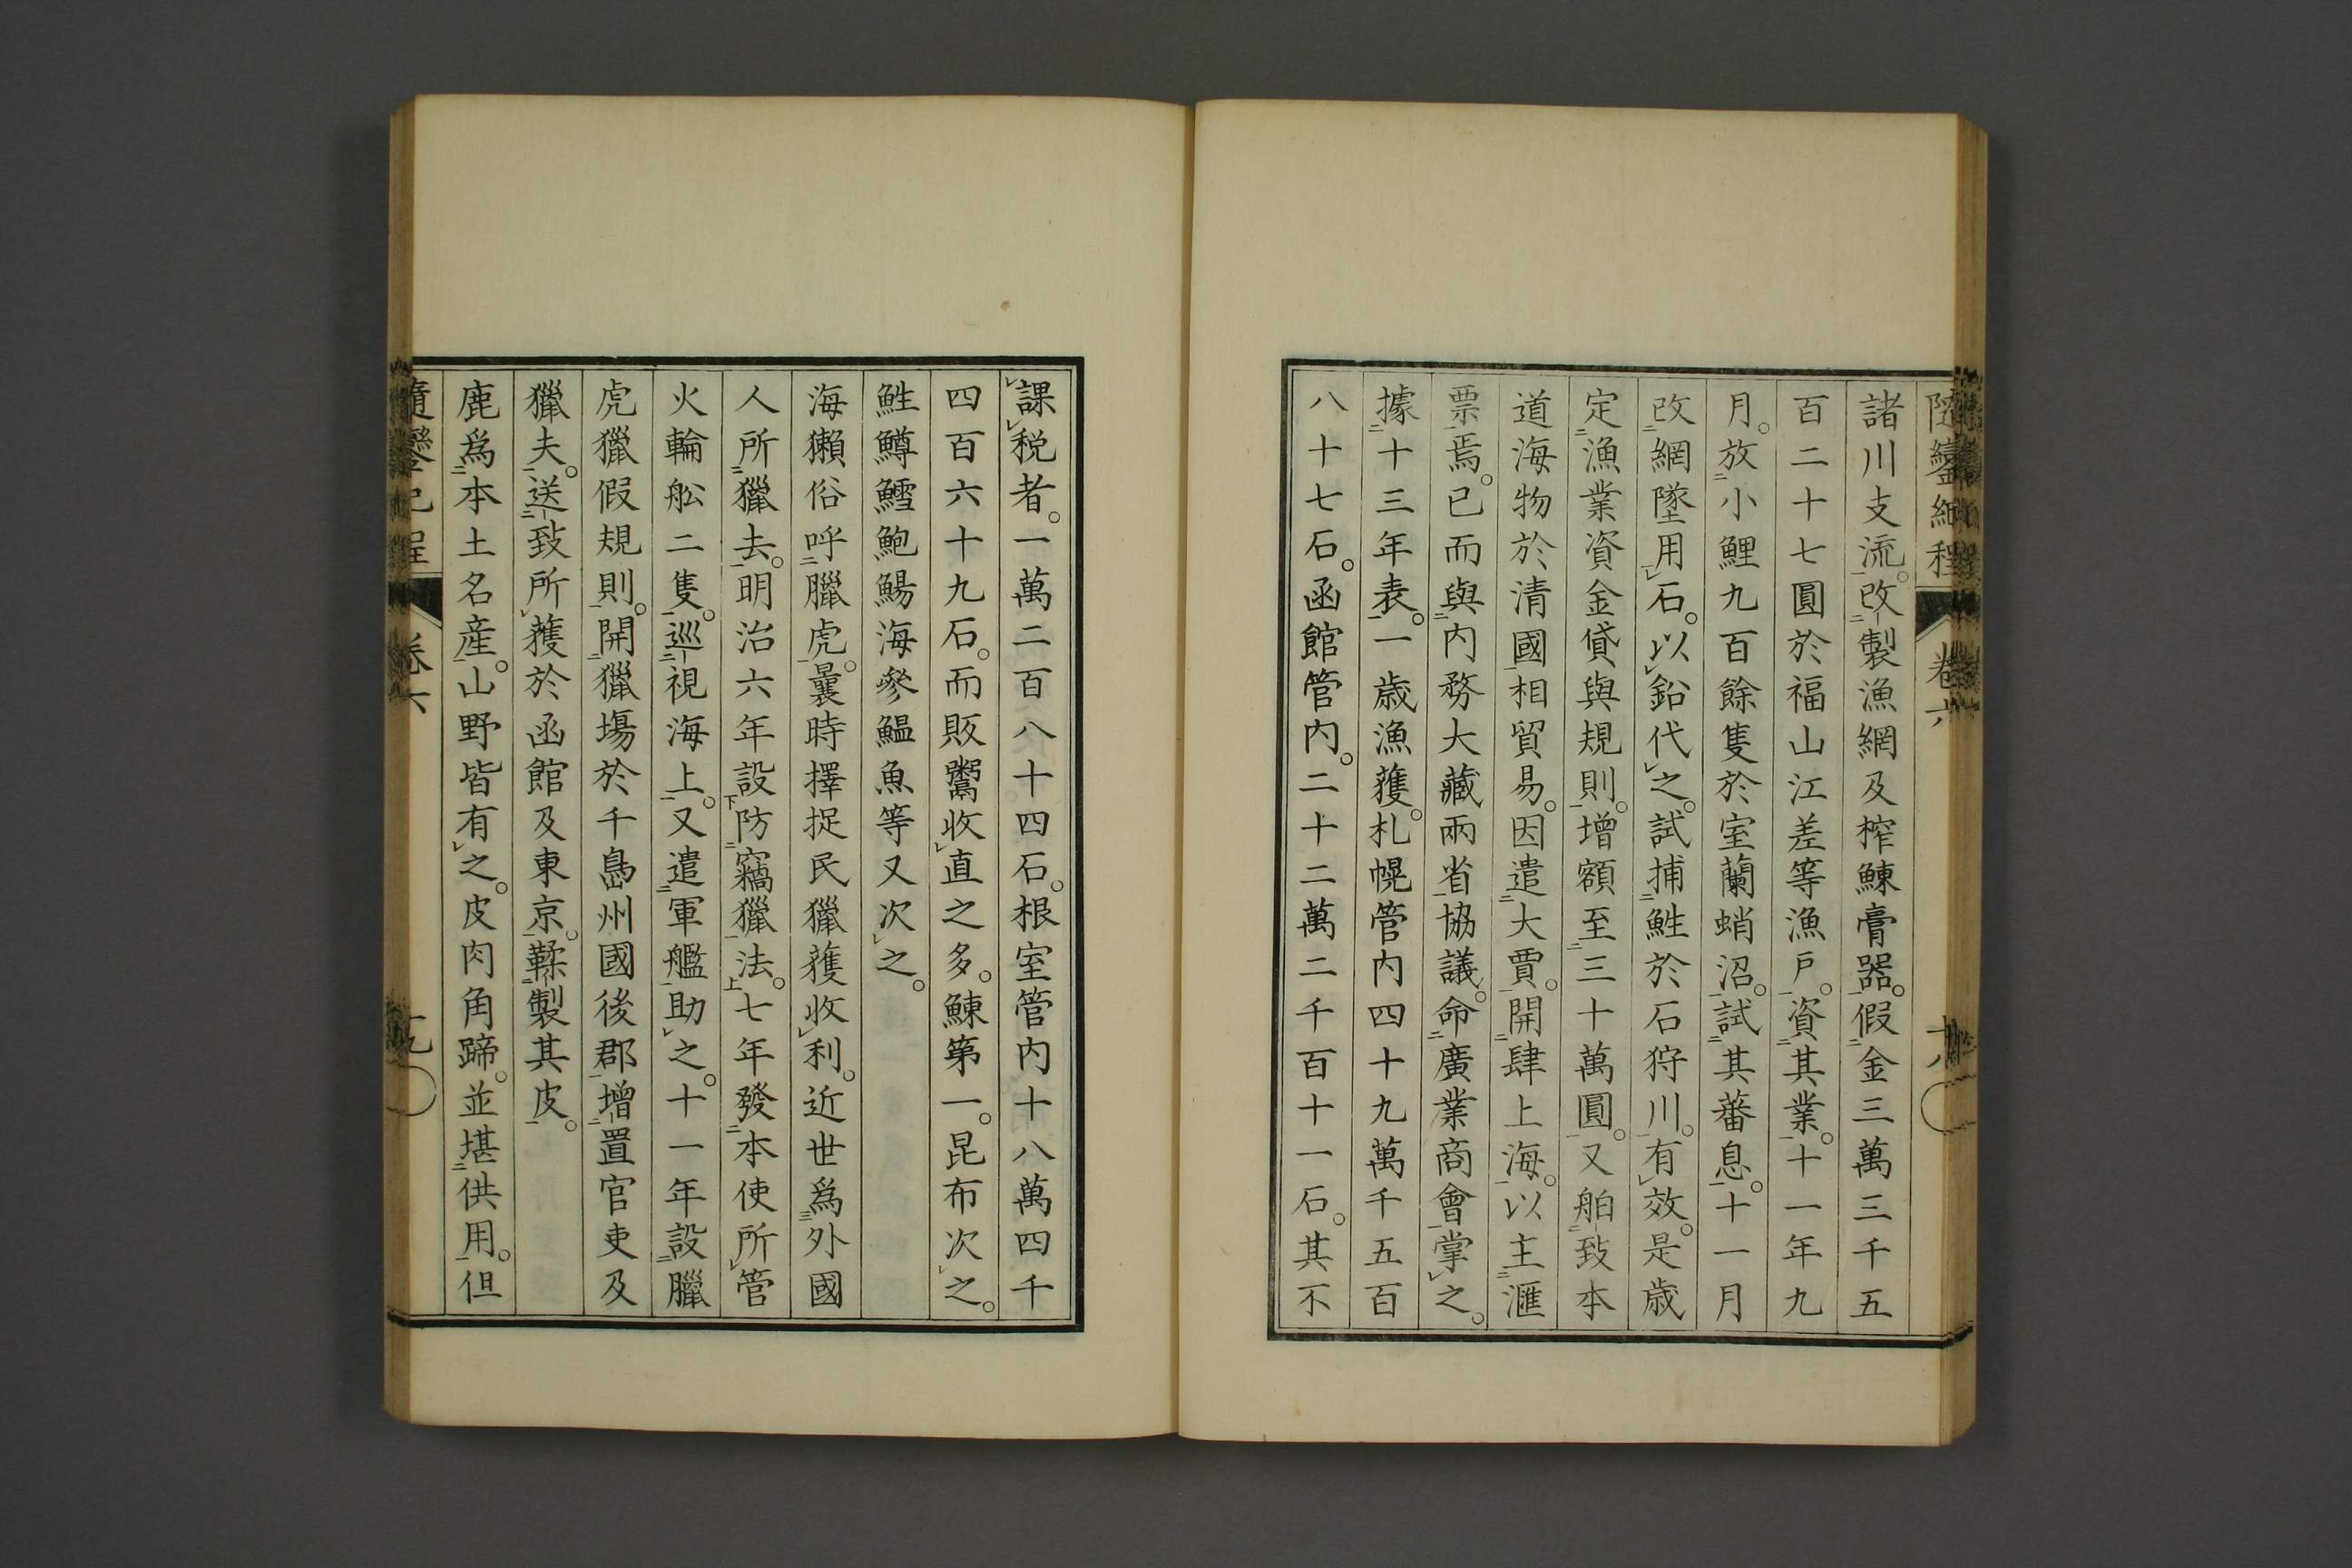 隨鑾紀程 卷六 十八
諸川支流。改製漁網及榨鰊膏器。假金三萬三千五
百二十七圓於福山江差等漁戶。資其業。十一年九
月。放小鯉九百餘隻於室蘭蛸沼。試其蕃息。十一月
改網墜用石。以鉛代之。試捕鮏於石狩川。有效。是歲
定漁業資金貸與規則。增額至三十萬圓。又舶致本
道海物於清國相貿易。因遣大賈。開肆上海。以主滙
票焉。已而與内務大藏兩省協議。命廣業商會掌之。
據十三年表。一歲漁獲。札幌管内四十九萬千五百
八十七石。函館管内。二十二萬二千百十一石。其不
課税者。一萬二百八十四石。根室管内十八萬四千
四百六十九石。而販鬻收直之多。鰊第一。昆布次之。
鮏鱒鱈鮑鯣海參鰮魚等又次之。
海獺俗呼臘虎。曩時擇捉民獵獲收利。近世爲外國
人所獵去。明治六年設防竊獵法。七年發本使所管
火輪舩二隻。巡視海上。又遣軍艦助之。十一年設臘
虎獵假規則。開獵場於千島州國後郡。增置官吏及
獵夫。送致所獲於函館及東京。鞣製其皮。
鹿爲本土名産。山野皆有之。皮肉角蹄。並堪供用。但
隨鑾紀程 卷六 十九